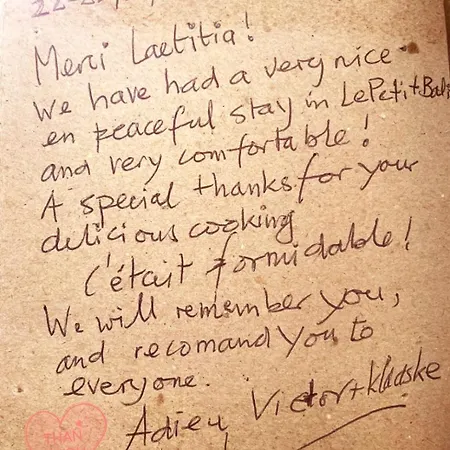 Merci Laetitia!
We have had a very nice
en peaceful stay in Le Petit Bali
and very comfortable!
A special thanks for your
delicious cooking
C'était formidable!
We will remember you,
and recomand you to
everyone.
Adieu Victor + Klaaske
THAN